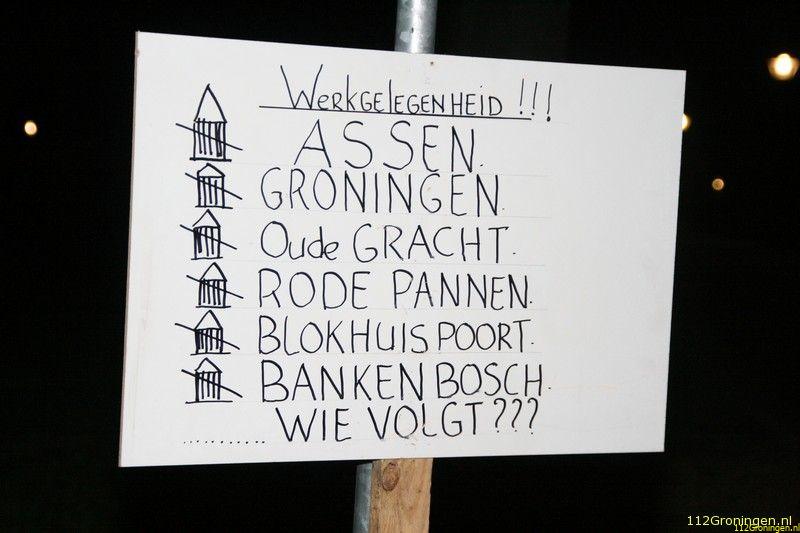 Werkgelegenheid !!!
ASSEN.
GRONINGEN.
Oude GRACHT.
RODE PANNEN.
BLOKHUISPOORT.
BANKENBOSCH.
.......... WIE VOLGT???
112Groningen.nl
112Groningen.nl